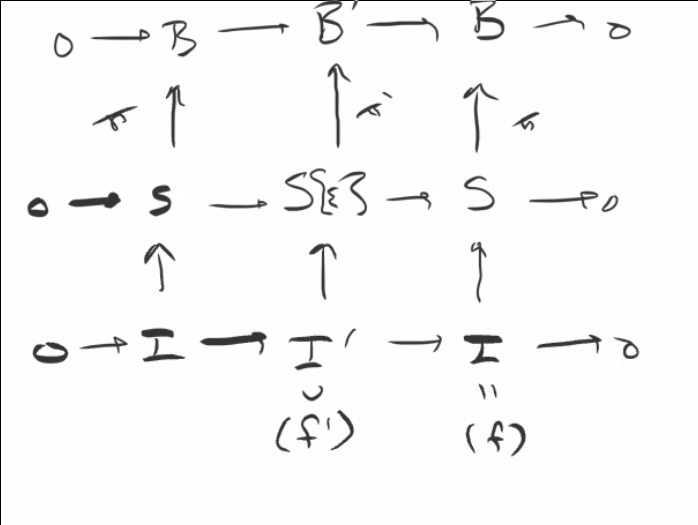 0 → B → B' → B → 0
π ↑ ↑ π' ↑ π
0 → S → S[ε] → S → 0
↑ ↑ ↑
0 → I → I' → I → 0
∪ =
(f') (f)